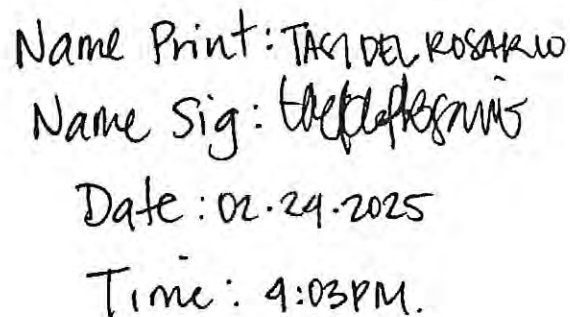 Name Print: TACI DEL ROSARIO
Name Sig:
Date: 02.24.2025
Time: 4:03PM.